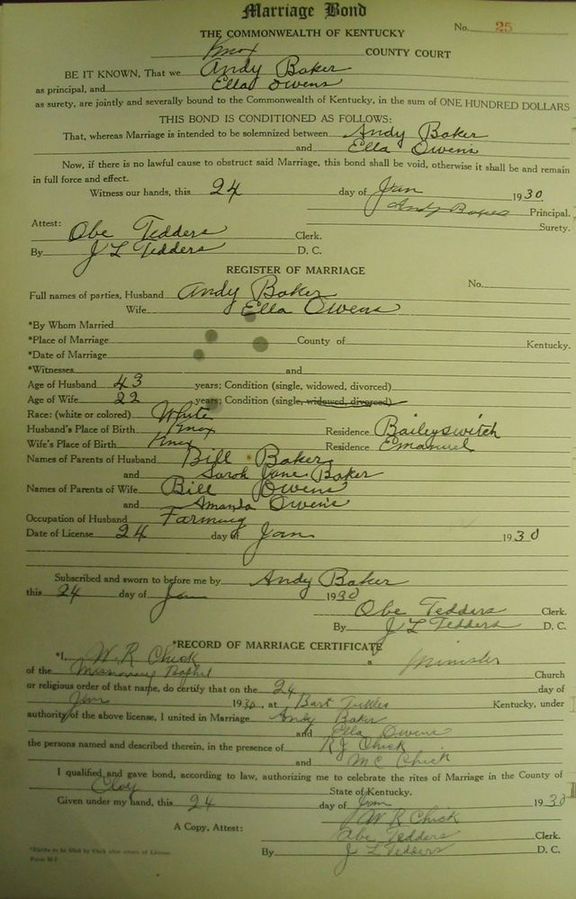 Marriage Bond
No. 25
THE COMMONWEALTH OF KENTUCKY
Knox COUNTY COURT
BE IT KNOWN, That we Andy Baker
as principal, and Ella Owens
as surety, are jointly and severally bound to the Commonwealth of Kentucky, in the sum of ONE HUNDRED DOLLARS
THIS BOND IS CONDITIONED AS FOLLOWS:
That, whereas Marriage is intended to be solemnized between Andy Baker
and Ella Owens
Now, if there is no lawful cause to obstruct said Marriage, this bond shall be void, otherwise it shall be and remain
in full force and effect.
Witness our hands, this 24 day of Jan 1930
Andy Principal.
Surety.
Attest:
Obe Tedders Clerk.
By J L Tedders D. C.
REGISTER OF MARRIAGE
Full names of parties, Husband Andy Baker No.
Wife Ella Owens
*By Whom Married
*Place of Marriage County of Kentucky.
*Date of Marriage
*Witnesses and
Age of Husband 43 years; Condition (single, widowed, divorced)
Age of Wife 22 years; Condition (single, widowed, divorced)
Race: (white or colored) White
Husband's Place of Birth Knox Residence Baileyswitch
Wife's Place of Birth Knox Residence Emanuel
Names of Parents of Husband Bill Baker
and Sarah Jane Baker
Names of Parents of Wife Bill Owens
and Amanda Owens
Occupation of Husband Farming
Date of License 24 day of Jan 1930
Subscribed and sworn to before me by Andy Baker
this 24 day of Jan 1930
Obe Tedders Clerk.
By J L Tedders D. C.
*RECORD OF MARRIAGE CERTIFICATE
*I, W. R Chick a Minister
of the Church
or religious order of that name, do certify that on the 24 day of
Jan 1930, at Bart Kentucky, under
authority of the above license, I united in Marriage Andy Baker
and Ella Owens
the persons named and described therein, in the presence of R J Chick
and M C Chick
I qualified and gave bond, according to law, authorizing me to celebrate the rites of Marriage in the County of
State of Kentucky.
Given under my hand, this 24 day of Jan 1930
W R Chick
A Copy, Attest: Obe Tedders Clerk.
By J L Tedders D. C.